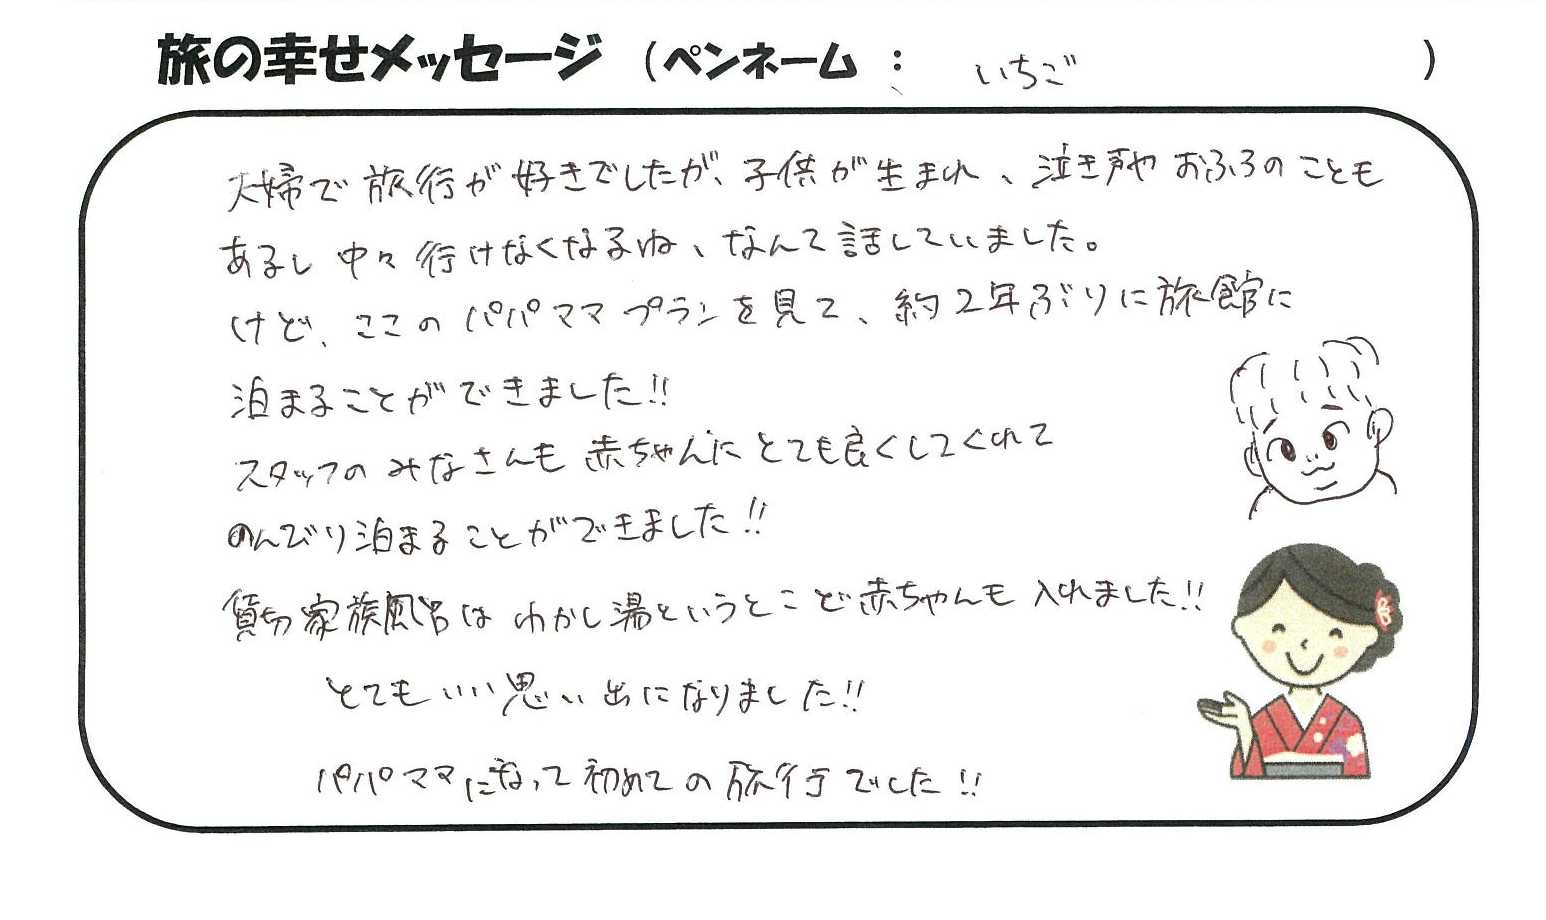 旅の幸せメッセージ (ペンネーム : いちご )
夫婦で旅行が好きでしたが、子供が生まれ、泣き声や おふろのことも
あるし 中々 行けなくなるね、なんて話していました。
けど、ここの パパママ プランを見て、約2年ぶりに旅館に
泊まることができました!!
スタッフの みなさんも 赤ちゃんに とても良くしてくれて
のんびり泊まることができました!!
貸切 家族風呂は わかし湯というとこで赤ちゃんも 入れました!!
とてもいい思い出になりました!!
パパママになって初めての旅行でした!!